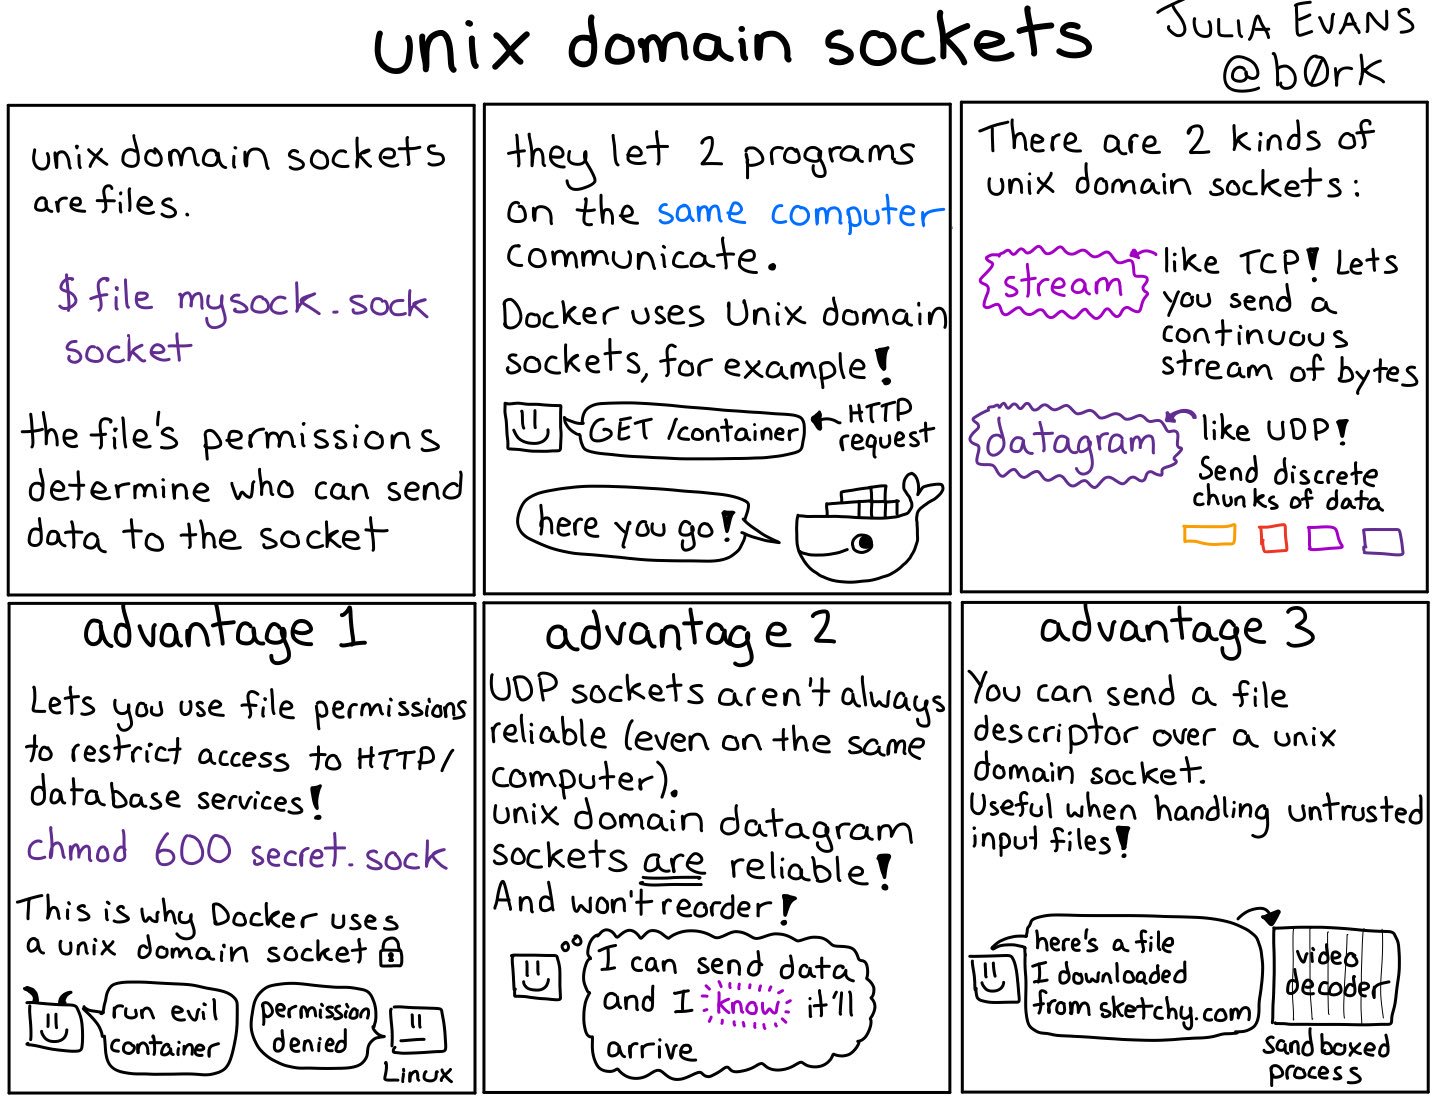 unix domain sockets
JULIA EVANS
@b0rk
unix domain sockets
are files.
$ file mysock.sock
socket
the file's permissions
determine who can send
data to the socket
they let 2 programs
on the same computer
communicate.
Docker uses Unix domain
sockets, for example!
GET /container
HTTP
request
here you go!
There are 2 kinds of
unix domain sockets:
stream
like TCP! Lets
you send a
continuous
stream of bytes
datagram
like UDP!
Send discrete
chunks of data
advantage 1
Lets you use file permissions
to restrict access to HTTP/
database services!
chmod 600 secret.sock
This is why Docker uses
a unix domain socket
run evil
container
permission
denied
Linux
advantage 2
UDP sockets aren't always
reliable (even on the same
computer).
unix domain datagram
sockets are reliable!
And won't reorder!
I can send data
and I know it'll
arrive
advantage 3
You can send a file
descriptor over a unix
domain socket.
Useful when handling untrusted
input files!
here's a file
I downloaded
from sketchy.com
video
decoder
sandboxed
process